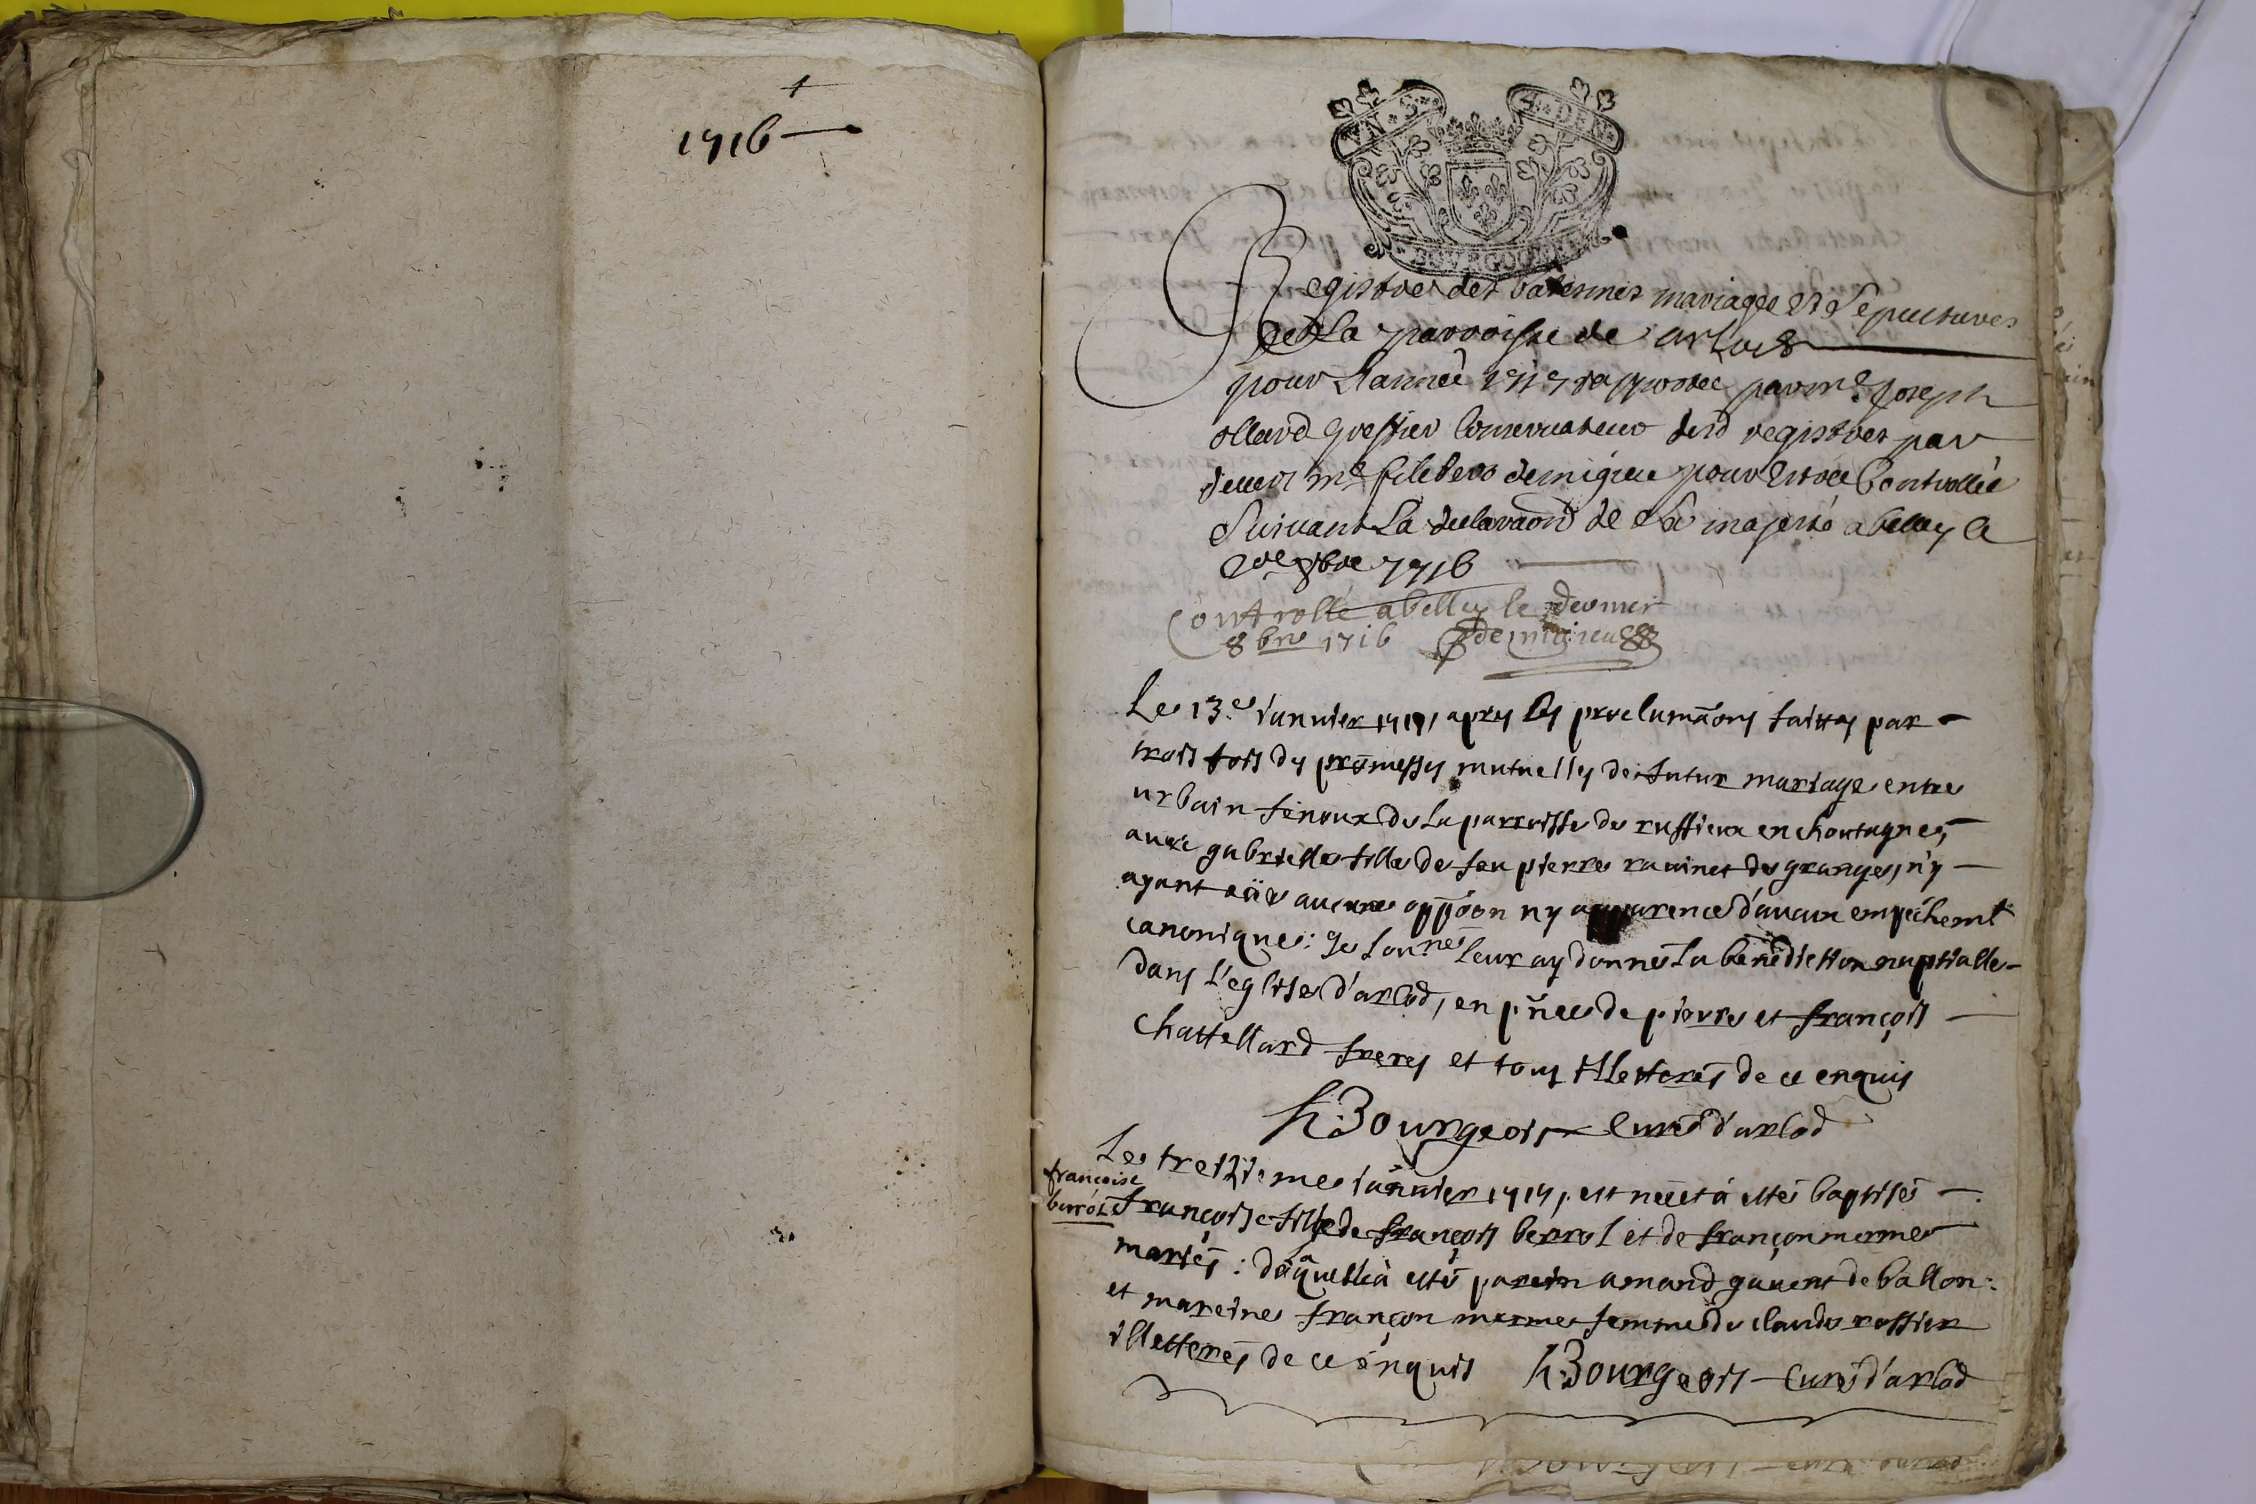 1716
VN·S
4·DEN
BOVRGOGNE
Registre des batesmes mariages et Sepultures
de La parroisse de arlod
pour L'année 1717 rapportée par me Joseph
ollard greffier Conservateur desd registres par
devant me demigieu pour Estre Controllée
Suivant La declaraōn de Sa majesté a belley le
8bre 1716
Controllé a belley le dernier
8bre 1716 demigieu
Le 13.e ianvier 1717, apres les proclumāons faittes par
trois fois des promesses mutuelles de futur mariage entre
urbain fenoux de La parroisse de ruffieux en chontagne,
avec gabrielle fille de feu pierre ravinet des granges, n'y
ayant eüe aucune oppōon ny apparence d'aucun empéchemt
canonique: Je Sousnē Leur ay donné La bénédiction nuptialle
dans L'eglise d'arlod, en pñce de pierre et françois
Chattellard freres et tous illetterés de ce enquis
h Bourgeois Curé d'arlod
Le treizieme ianvier 1717, est née et a estée baptisée
françoise
berrol
françoise fille de françois berrol et de françon merme
mariés: de laquelle à esté parein amand gavent de ballon:
et mareine françon merme femme de claude rossier
illetterés de ce enquis h Bourgeois Curé d'arlod